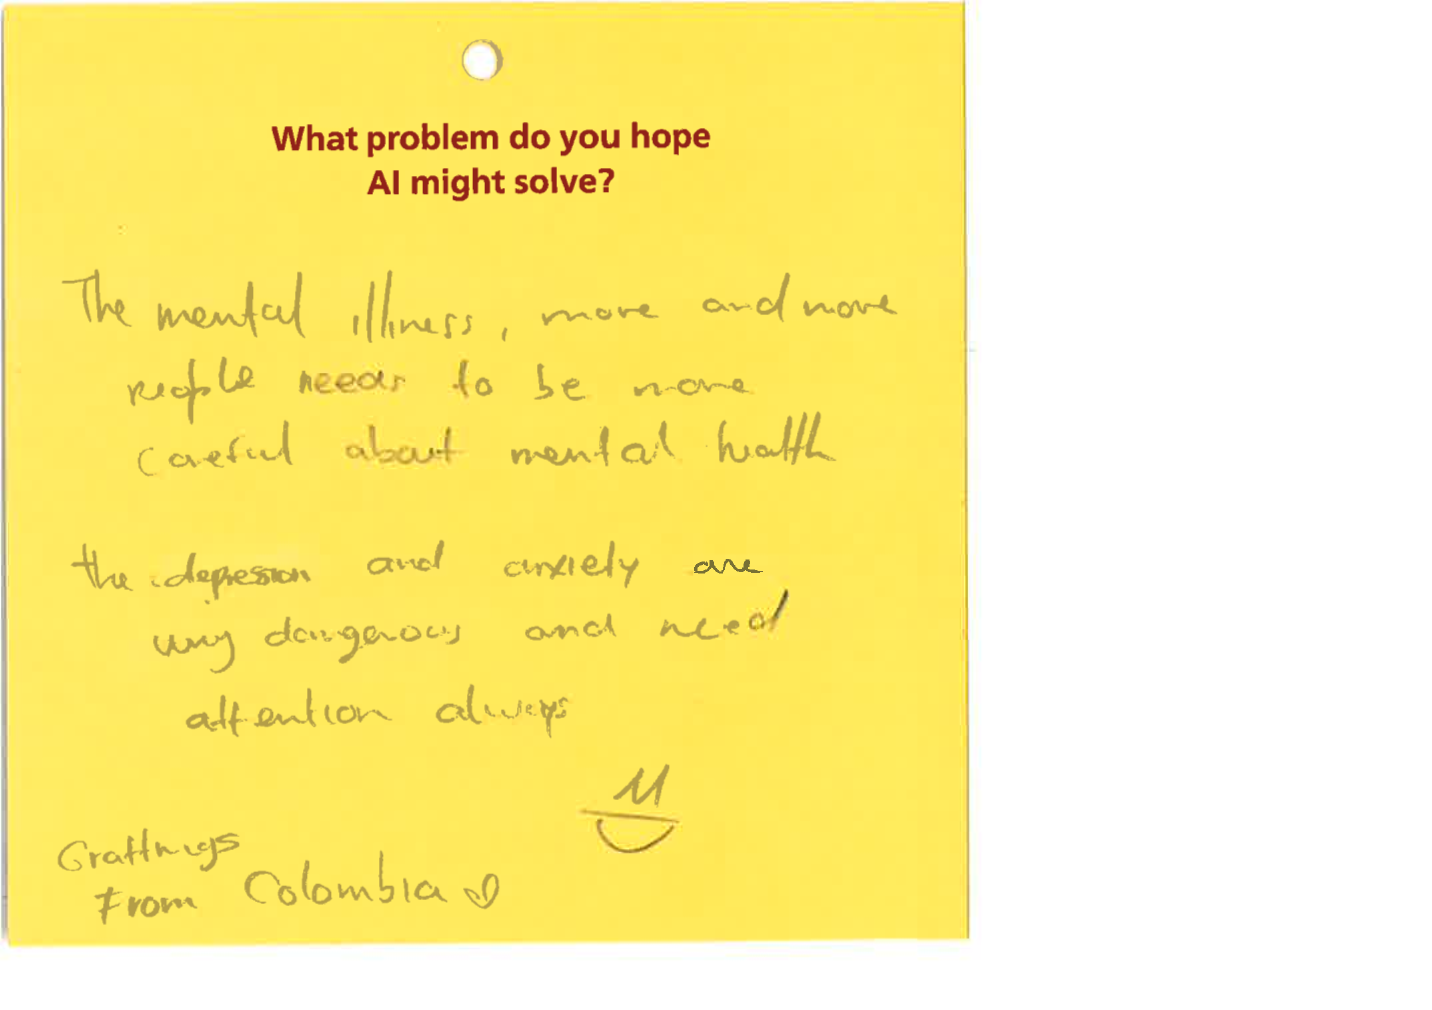 What problem do you hope
AI might solve?
The mental illness, more and more
people needs to be more
careful about mental health
the depression and anxiety are
very dangerous and need
attention always
Grattings
From Colombia